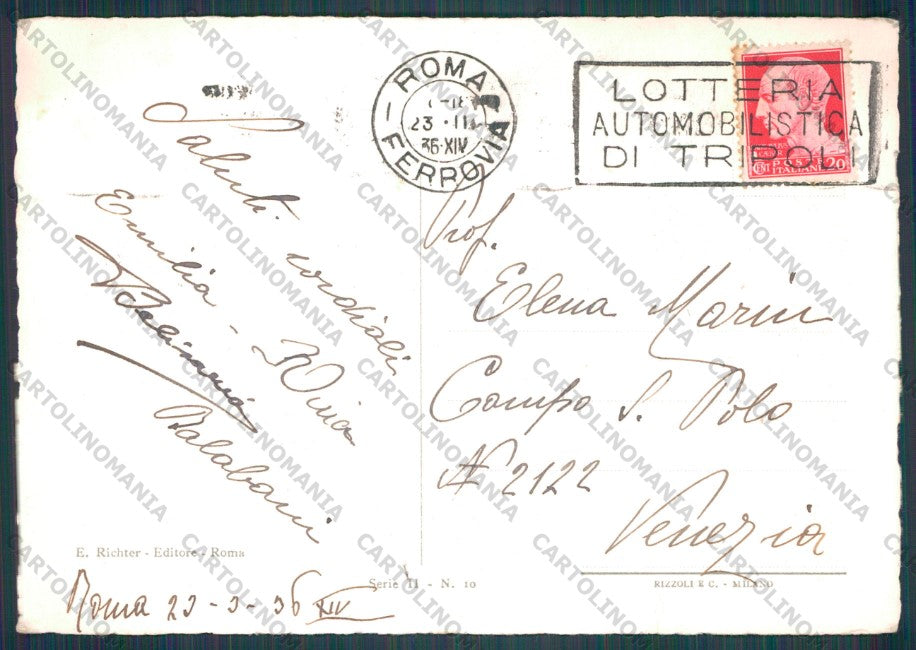 ROMA
23 · III
36·XIV
FERROVIA
LOTTERIA
AUTOMOBILISTICA
DI TRIPOLI
CENT POSTE 20
ITALIANE
Saluti cordiali
Emilia -
Balabani
Prof.
Elena Marini
Campo S. Polo
N 2122
Venezia
E. Richter - Editore - Roma
Serie II - N. 10
RIZZOLI E C. - MILANO
Roma 23-3-36 XIV
CARTOLINOMANIA